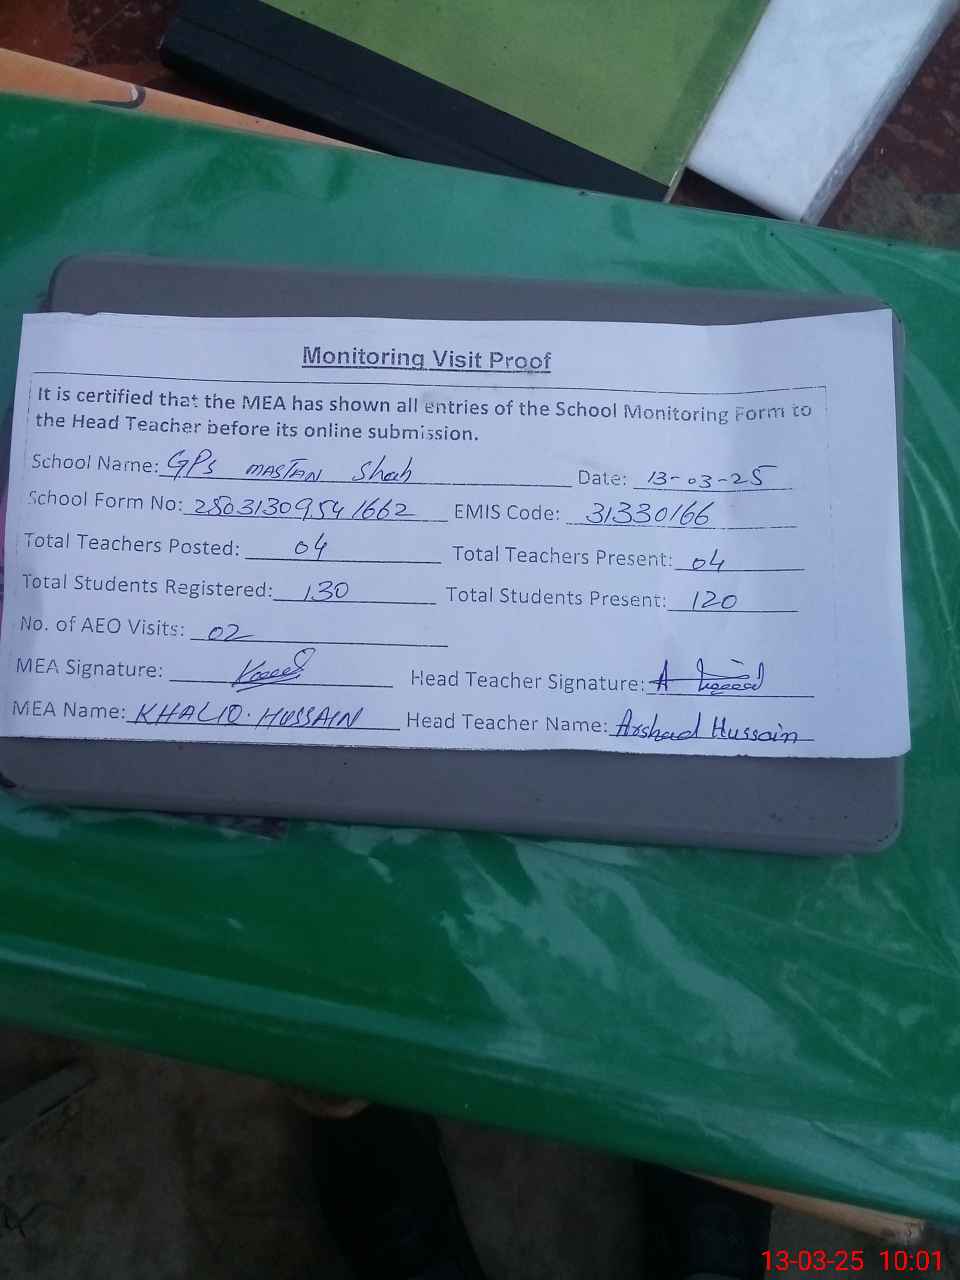 Monitoring Visit Proof
It is certified that the MEA has shown all entries of the School Monitoring Form to
the Head Teacher before its online submission.
School Name: GPS MASTAN Shah Date: 13-03-25
School Form No: 2803130954 1662 EMIS Code: 31330166
Total Teachers Posted: 04 Total Teachers Present: 04
Total Students Registered: 130 Total Students Present: 120
No. of AEO Visits: 02
MEA Signature: Head Teacher Signature:
MEA Name: KHALID. HUSSAIN Head Teacher Name: Arshad Hussain
13-03-25 10:01